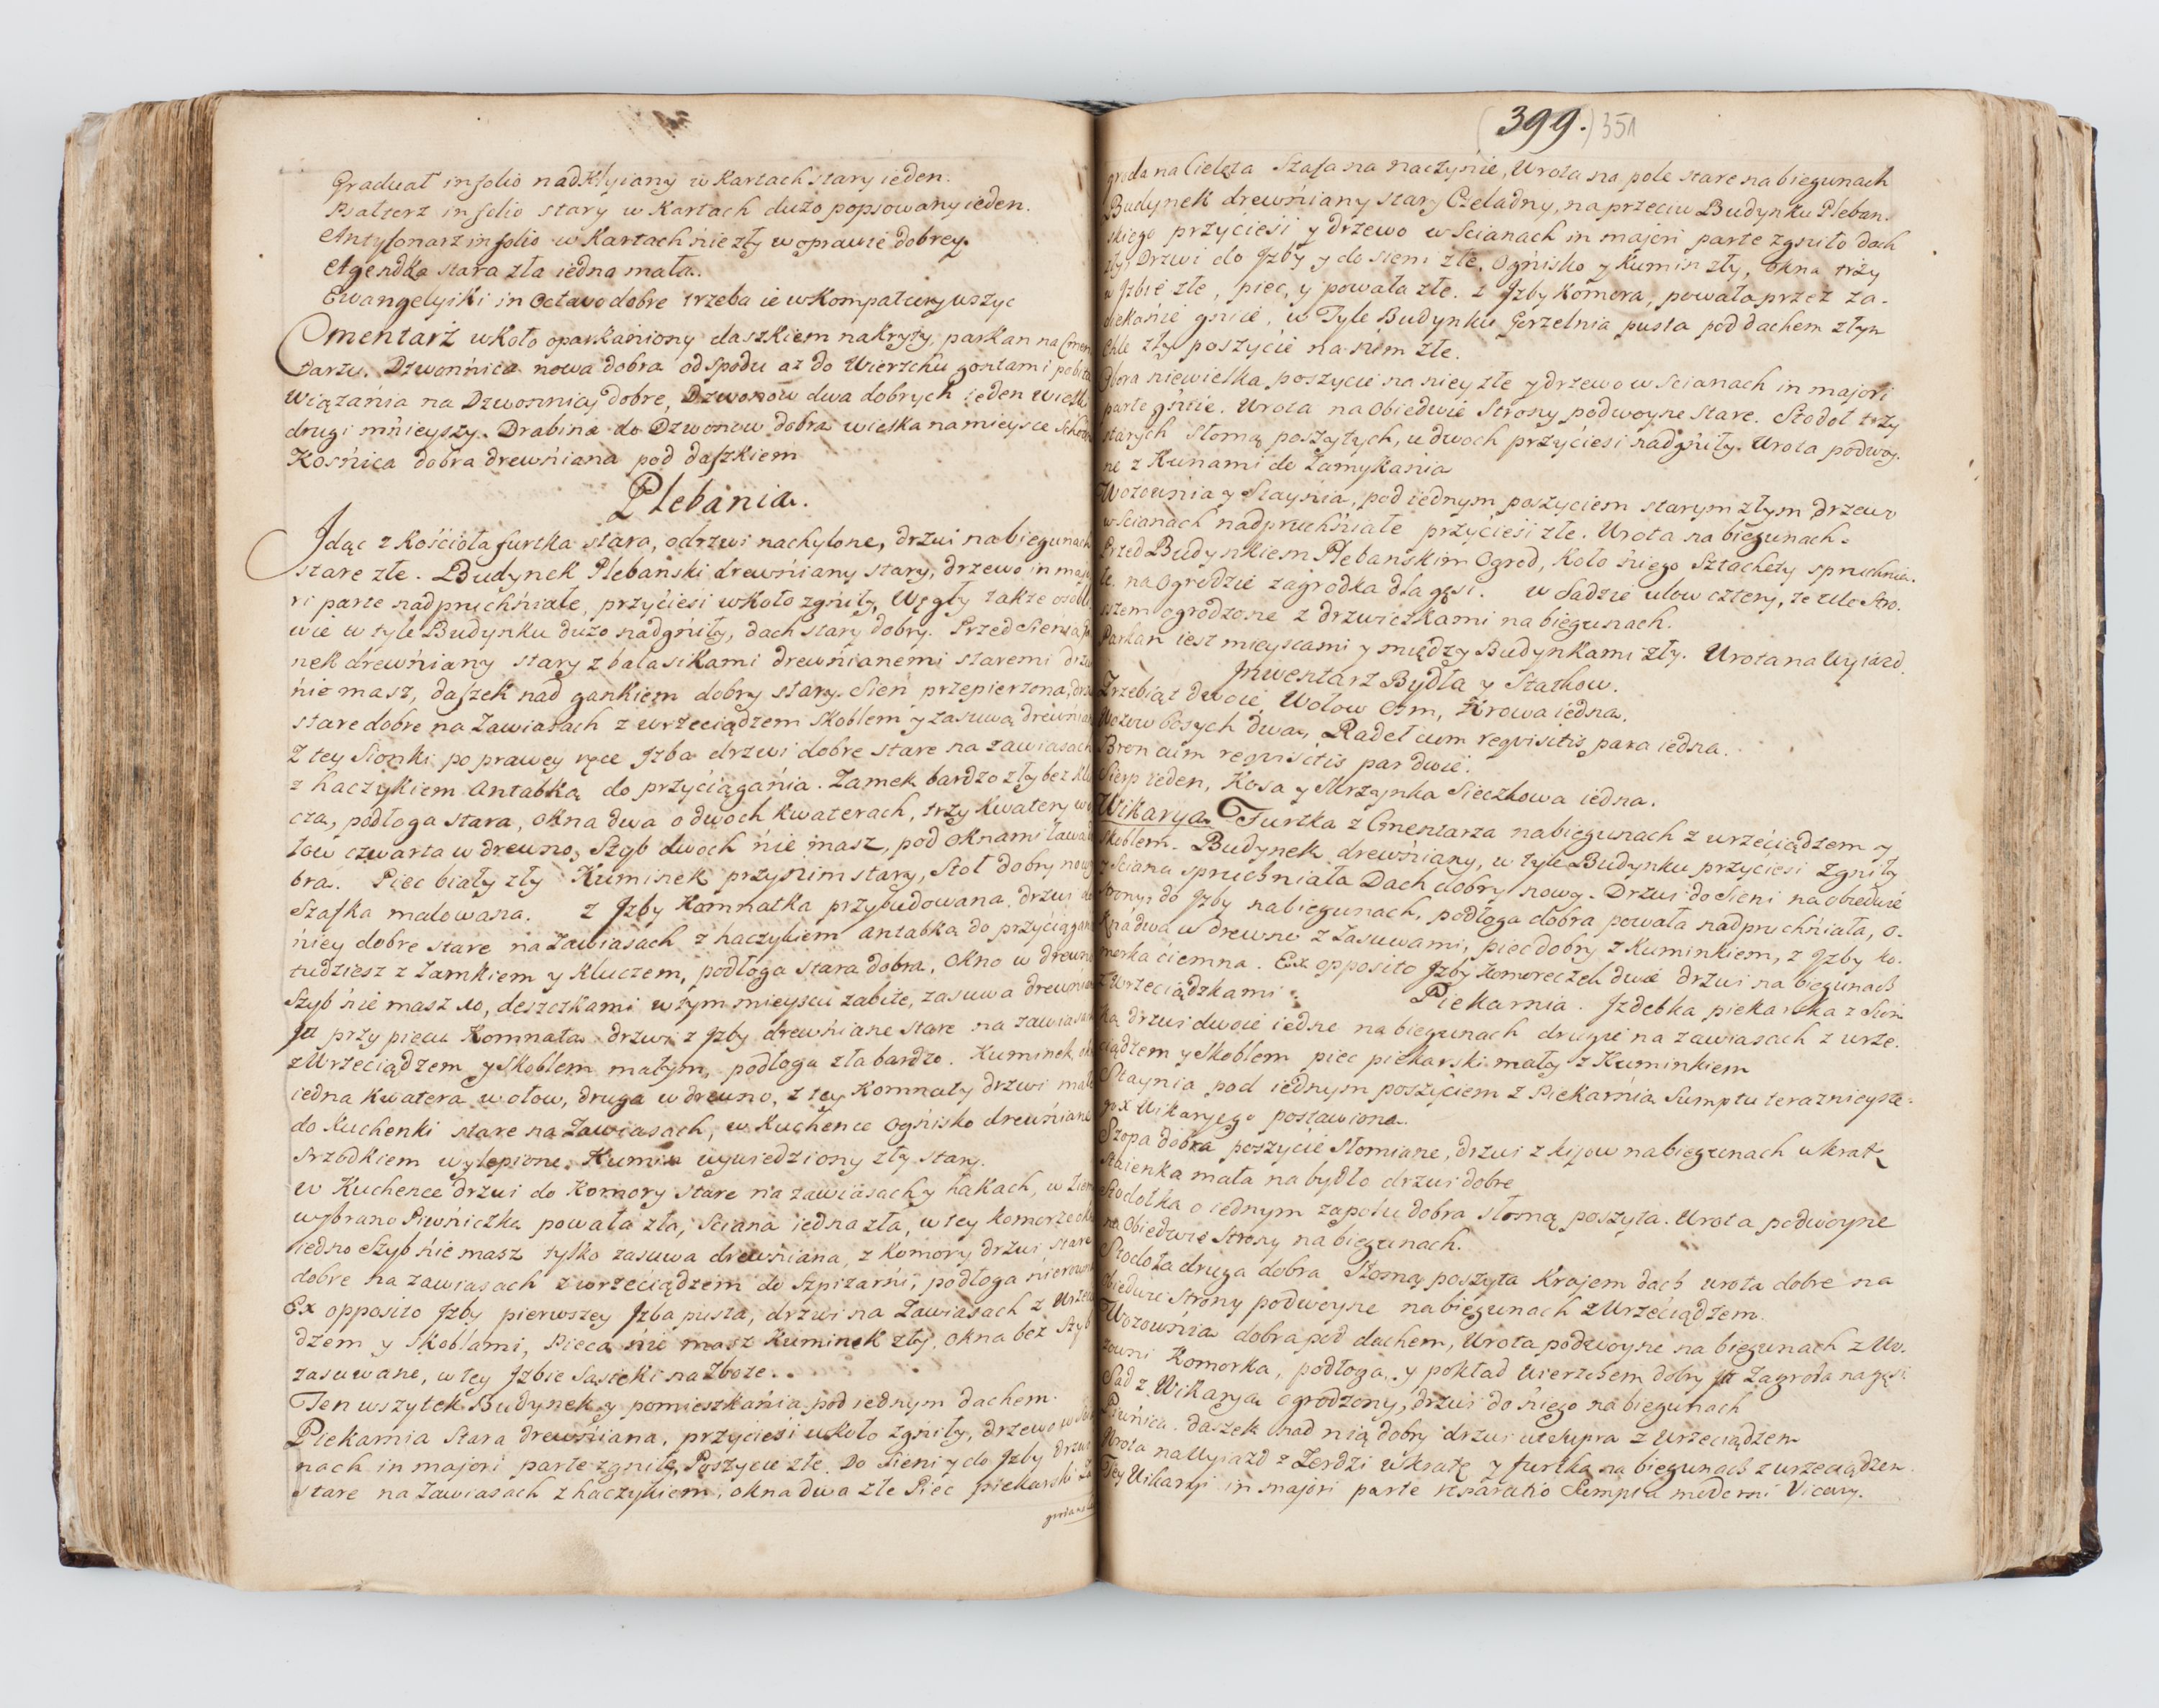 Graduał in folio nadklyiany w kartach stary ieden.
Psałterz in folio stary w kartach dużo popsowany ieden.
Antyfonarz in folio w kartach niezły w oprawie dobrey.
Agendka stara zła iedna mała.
Ewangelyiki in Octavo dobre trzeba ie w kompaturę wszyc
Cmentarz wkoło oparkaniony daszkiem nakryty, parkan na Cmen
tarzu. Dzwonnica nowa dobra od spodu aż do Wierzchu gontami pobita
Wiązania na Dzwonnicy dobre, Dzwonow dwa dobrych ieden Wielki
drugi mnieyszy. Drabina do Dzwonow dobra wielka na mieysce
Kosnica dobra drewniana pod daszkiem
Plebania.
Idąc z Kościoła furtka stara, odrzwi nachylone, drzwi na biegunach
stare złe. Budynek Plebański drewniany stary, drzewo in majo
ri parte nadpruchniałe, przyciesi wkoło zgniły, Węgły także osobli
wie w tyle Budynku dużo nadgniły, dach stary dobry. Przed Sienią ga
nek drewniany stary z balasikami drewnianemi staremi drzwi
nie masz, daszek nad gankiem dobry stary. Sień przepierzona, drzwi
stare dobre na Zawiasach z wrzeciądzem skoblem y zasuwą drewnian
Z tey Sionki po prawey ręce Izba drzwi dobre stare na zawiasach
z haczykiem Antabką do przyciągania. Zamek bardzo zły bez Klu
cza, podłoga stara, okna dwa o dwoch kwaterach, trzy kwatery w o
łow czwarta w drewno, Szyb dwoch nie masz, pod oknami ława do
bra. Piec biały zły Kuminek przynim stary, Stoł dobry nowy
Szafka malowana. z Izby Komnatka przybudowana, drzwi do
niey dobre stare na Zawiasach z haczykiem antabka do przyciągania
tudziesz z Zamkiem y Kluczem, podłoga stara dobra, Okno w drewno
Szyb nie masz 10, deszczkami w tym mieyscu zabite, zasuwa drewniana
It przy piecu Komnata drzwi z Izby drewniane stare na zawiasach
z Wrzeciądzem y Skoblem małym, podłoga zła bardzo. Kuminek, okn
iedna kwatera w ołow, druga w drewno, z tey Komnaty drzwi małe
do Kuchenki stare na Zawiasach, w Kuchence Ognisko drewniane
srzodkiem wylepione. Kumin wywiedziony zły stary.
w Kuchence drzwi do Komory stare na zawiasach y hakach, w ziemi
wybrano Piwniczka powała zła, Sciana iedna zła, w tey komorze okno
iedno Szyb nie masz tylko zasuwa drewniana, z Komory drzwi stare
dobre na zawiasach z wrzeciądzem do Szpizarni, podłoga nierowna
Ex opposito Izby pierwszey Izba pusta, drzwi na Zawiasach z Wrzecią
dzem y Skoblami, Pieca nie masz Kuminek zły, Okna bez Szyb
zasuwane, w tey Izbie Sąsieki na Zboże.
Ten wszytek Budynek y pomieszkania pod iednym dachem.
Piekarnia Stara drewniana, przyciesi wkoło zgniły, drzewo w Scia
nach in majori parte zgniłe, Poszycie złe. Do Sieni y do Izby drzwi
stare na Zawiasach z haczykiem, okna dwa złe Piec piekarski Za
groda na
399. 351
groda na Cielęta Szafa na naczynie, Wrota na pole stare na biegunach
Budynek drewniany stary Czeladny, na przeciw Budynku Pleban-
skiego przyciesi y drzewo w Scianach in majori parte zgniło dach
zły, Drzwi do Izby y do Sieni złe, Ognisko y Kumin zły, Okna trzy
w Izbie złe, piec, y powała złe. z Izby Komora, powała przez za-
ciekanie gnije, w Tyle Budynku Gorzelnia pusta pod dachem złym
Chle zły poszycie na nim złe.
Obora niewielka poszycie na niey złe y drzewo w Scianach in majori
parte gnije. Wrota na Obiedwie Strony podwoyne stare. Stodoł trzy
starych Słomą poszytych, u dwoch przyciesi nadgniły. Wrota podwoy-
ne z Kunami do Zamykania
Wozownia y Staynia, pod iednym poszyciem starym złym drzewo
w Scianach nadpruchniałe przyciesi złe. Wrota na biegunach.
Przed Budynkiem Plebanskim Ogrod, koło niego Sztachety spruchnia-
łe. na Ogrodzie zagrodka dla gęsi. w Sadzie Ulow cztery, te Ule Chro-
ustem ogrodzone z drzwiczkami na biegunach.
Parkan iest mieyscami y między Budynkami zły. Wrota na Wyiazd.
Inwentarz Bydła y Statkow.
Zrzebiąt dwoie, Wołow Osm, Krowa iedna.
Wozow bosych dwa, Radeł cum requisitis para iedna.
Bron cum requisitis par dwie.
Sierp ieden, Kosa y Skrzynka Sieczkowa iedna.
Wikarya. Furtka z Cmentarza na biegunach z wrzeciądzem y
Skoblem. Budynek drewniany, w tyle Budynku przyciesi Zgniły
y Sciana spruchniała Dach dobry nowy. Drzwi do Sieni na obiedwie
strony, do Izby na biegunach, podłoga dobra powała nadpruchniała, o-
kna dwa w drewno z Zasuwami, piec dobry z Kuminkiem, z Izby ko-
morka ciemna. Ex opposito Izby Komoreczek dwie drzwi na biegunach
z Wrzeciądzkami. Piekarnia. Izdebka piekarska z Sion
ką drzwi dwoie iedne na biegunach drugie na zawiasach z wrze-
ciądzem y Skoblem piec piekarski mały z Kuminkiem
Staynia pod iednym poszyciem z Piekarnią Sumptu teraznieysze-
go X Wikaryego postawiona.
Szopa dobra poszycie Słomiane, drzwi z kijow na biegunach w kratę
Staienka mała na bydło drzwi dobre
Stodołka o iednym zapolu dobra słomą poszyta. Wrota podwoyne
na Obiedwie Strony na biegunach.
Stodoła druga dobra Słomą poszyta Krajem dach wrota dobre na
obiedwie strony podwoyne na biegunach z Wrzeciądzem.
Wozownia dobra pod dachem, Wrota podwoyne na biegunach z Wo-
zowni Komorka, podłoga, y pokład Wierzchem dobry It Zagroda na gęsi
Sad z Wikaryą ogrodzony, drzwi do niego na biegunach
Piwnica daszek nad nią dobry drzwi ut Supra z Wrzeciądzem
Wrota na Wyiazd z Zerdzi w kratę y furtka na biegunach z wrzeciądzem.
Tey Wikaryi in majori parte reparatio Sumptu moderni Vicarij.